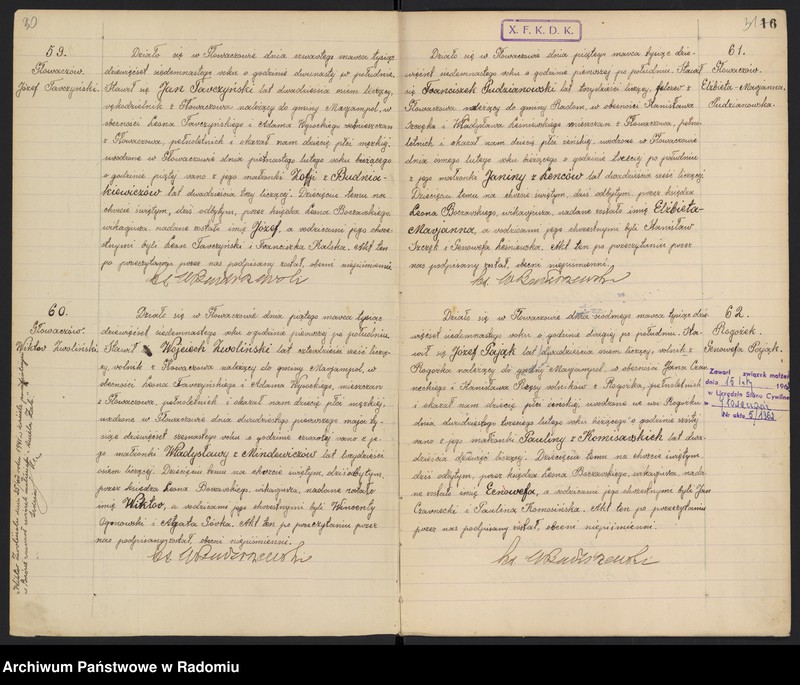 30
59.
Głowaczów.
Józef Tarczyński.
Działo się w Głowaczowie dnia czwartego marca tysiąc
dziewięćset siedemnastego roku o godzinie dwunastej w południe.
Stawił się Jan Tarczyński lat dwadzieścia osiem liczący,
z Głowaczowa należący do gminy Marjampol, w
obecności Leona Tarczyńskiego i Adama Wysockiego
z Głowaczowa, pełnoletnich i okazał nam dziecię płci męskiej,
urodzone w Głowaczowie dnia piętnastego lutego roku bieżącego
o godzinie piątej rano z jego małżonki Zofji z Budnia-
kiewiczów lat dwadzieścia trzy liczącej. Dziecięciu temu na
chrzcie świętym, dziś odbytym, przez księdza Leona Borzewskiego
wikarjusza, nadane zostało imię Józef, a rodzicami jego chrze-
stnymi byli Leon Tarczyński i Franciszka. Akt ten
po przeczytaniu przez nas podpisany został, obecni niepiśmienni.
60.
Głowaczów.
Wiktor Zwoliński.
Działo się w Głowaczowie dnia piątego marca tysiąc
dziewięćset siedemnastego roku o godzinie pierwszej po południu.
Stawił się Wojciech Zwoliński lat czterdzieści sześć liczą-
cy, rolnik z Głowaczowa należący do gminy Marjampol, w
obecności Leona Tarczyńskiego i Adama Wysockiego, mieszczan
z Głowaczowa, pełnoletnich i okazał nam dziecię płci męskiej,
urodzone w Głowaczowie dnia dwudziestego pierwszego marca ty-
siąc dziewięćset szesnastego roku o godzinie czwartej rano z je-
go małżonki Władysławy z Mindewiczów lat trzydzieści
osiem liczącej. Dziecięciu temu na chrzcie świętym, dziś odbytym,
przez księdza Leona Borzewskiego, wikarjusza, nadane zostało
imię Wiktor, a rodzicami jego chrzestnymi byli Wincenty
Ogonowski i Agata Sowka. Akt ten po przeczytaniu przez
nas podpisany został, obecni niepiśmienni.
X. F. K. D. K.
31
16
61.
Głowaczów.
Elżbieta-Marjanna
Pudzianowska.
Działo się w Głowaczowie dnia piątego marca tysiąc dzie-
więćset siedemnastego roku o godzinie pierwszej po południu. Stawił
się Franciszek Pudzianowski lat trzydzieści liczący, z
Głowaczowa należący do gminy Radom, w obecności Stanisława
i Władysława Leśniewskiego mieszczan z Głowaczowa, pełno-
letnich i okazał nam dziecię płci żeńskiej, urodzone w Głowaczowie
dnia ósmego lutego roku bieżącego o godzinie trzeciej po południu
z jego małżonki Janiny z Lenców lat dwadzieścia sześć liczącej.
Dziecięciu temu na chrzcie świętym, dziś odbytym, przez księdza
Leona Borzewskiego, wikarjusza, nadane zostało imię Elżbieta-
Marjanna, a rodzicami jego chrzestnymi byli Stanisław
i Genowefa Leśniewska. Akt ten po przeczytaniu przez
nas podpisany został, obecni niepiśmienni.
62.
Rogożek.
Genowefa Pająk.
Działo się w Głowaczowie dnia siódmego marca tysiąc dzie-
więćset siedemnastego roku o godzinie drugiej po południu. Sta-
wił się Józef Pająk lat dwadzieścia osiem liczący, rolnik z
Rogożka należący do gminy Marjampol, w obecności Jana Czar-
neckiego i Stanisława rolników z Rogożka, pełnoletnich
i okazał nam dziecię płci żeńskiej, urodzone we wsi Rogożku
dnia dwudziestego trzeciego lutego roku bieżącego o godzinie szóstej
rano z jego małżonki Pauliny z Komisarskich lat dwa-
dzieścia dziewięć liczącej. Dziecięciu temu na chrzcie świętym,
dziś odbytym, przez księdza Leona Borzewskiego, wikarjusza, nada-
ne zostało imię Genowefa, a rodzicami jego chrzestnymi byli Jan
Czarnecki i Paulina. Akt ten po przeczytaniu
przez nas podpisany został, obecni niepiśmienni.
Zawarł związek małżeń
dnia 15 luty 196
w Urzędzie Stanu Cywiln
Nr aktu 5/1963
Archiwum Państwowe w Radomiu